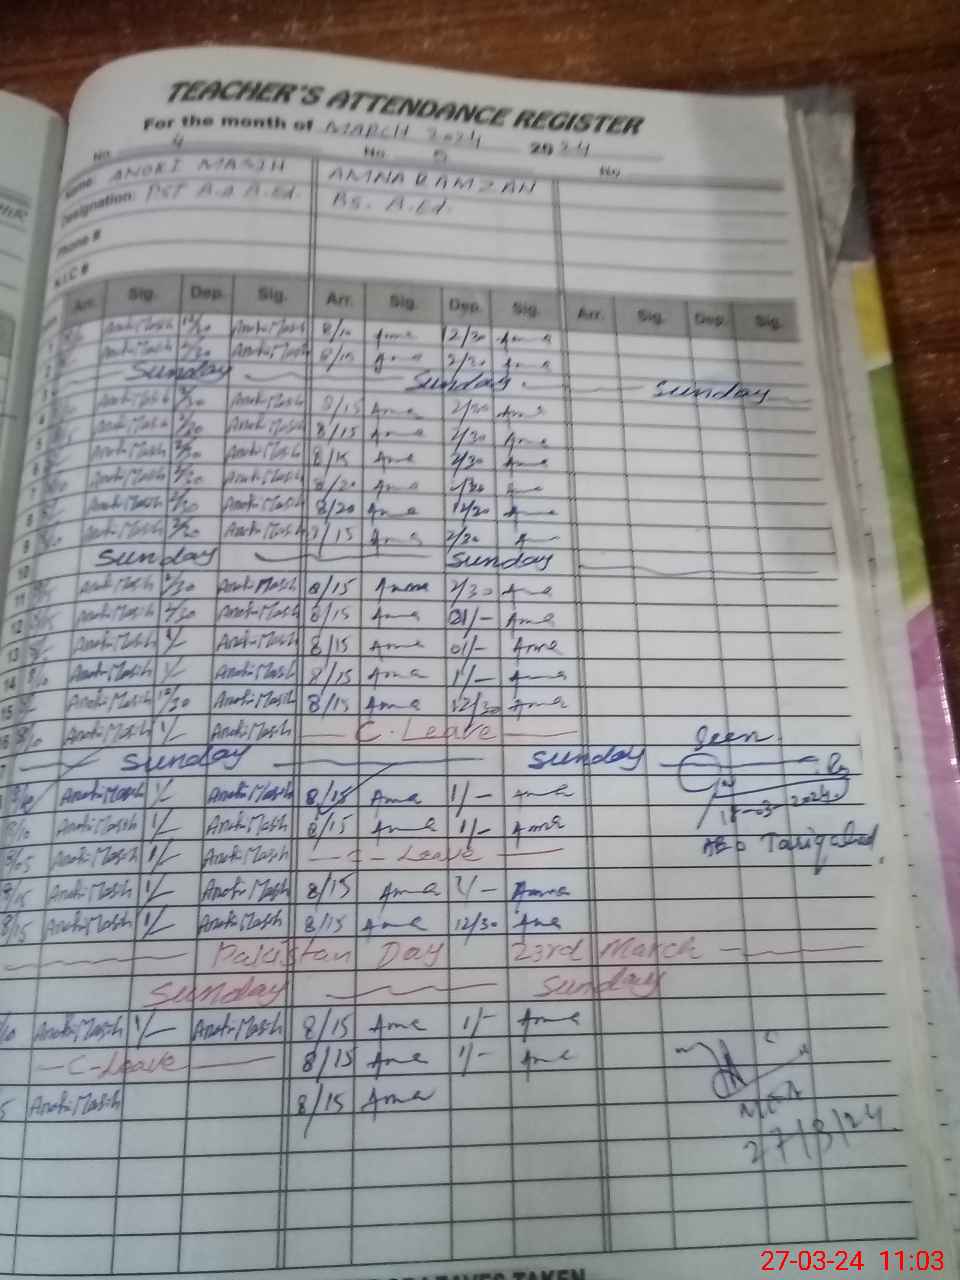 TEACHER'S ATTENDANCE REGISTER
For the month of MARCH 2024 2024
No. 4 No. 5 No
Name: ANOKI MASIH AMNA RAMZAN
Designation: PST A.Ed. Bs. A.Ed.
Phone #
N.I.C #
Arr. Sig. Dep. Sig. Arr. Sig. Dep. Sig. Arr. Sig. Dep. Sig.
1 Anoki Masih 12/30 Anoki Masih 8/10 Ama 12/30 Ama
2 Anoki Masih Anoki Masih 8/15 Ama 2/30 Ama
3 Sunday Sunday Sunday
4 Anoki Masih Anoki Masih 8/15 Ama 2/30 Ama
5 Anoki Masih 2/30 Anoki Masih 8/15 Ama 2/30 Ama
6 Anoki Masih Anoki Masih 8/15 Ama 2/30 Ama
7 Anoki Masih 2/30 Anoki Masih 8/20 Ama Ama
8 Anoki Masih 2/30 Anoki Masih 8/20 Ama 12/30 Ama
9 Anoki Masih 2/30 Anoki Masih 8/15 Ama 2/30 Ama
10 Sunday Sunday
11 Anoki Masih 2/30 Anoki Masih 8/15 Amna 2/30 Ama
12 Anoki Masih 2/30 Anoki Masih 8/15 Ama 01/- Ama
13 Anoki Masih 1/- Anoki Masih 8/15 Ama 01/- Ama
14 8/10 Anoki Masih 1/- Anoki Masih 8/15 Ama 1/- Ama
15 Anoki Masih 12/30 Anoki Masih 8/15 Ama 12/30 Ama
16 8/10 Anoki Masih 1/- Anoki Masih C-Leave Seen
Sunday Sunday
8/10 Anoki Masih 1/- Anoki Masih 8/15 Ama 1/- Ama 18-03-2024
8/10 Anoki Masih 1/- Anoki Masih 8/15 Ama 1/- Ama AEO Tariqabad
8/05 Anoki Masih 1/- Anoki Masih C-Leave
8/15 Anoki Masih 1/- Anoki Masih 8/15 Ama 1/- Amna
8/15 Anoki Masih 1/- Anoki Masih 8/15 Ama 12/30 Ama
Pakistan Day 23rd March
Sunday Sunday
Anoki Masih 1/- Anoki Masih 8/15 Ama 1/- Ama
C-Leave 8/15 Ama 1/- Ama
5 Anoki Masih 8/15 Ama
MEA
27/3/24
LEAVES TAKEN
27-03-24 11:03